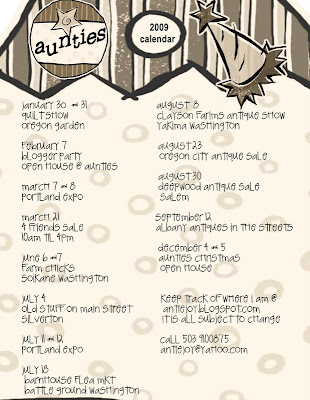 aunties
2009
calendar
january 30 & 31
quiltshow
oregon garden
february 7
blogger party
open house @ aunties
march 7 & 8
portland expo
march 21
4 friends sale
10am til 4pm
june 6 & 7
farm chicks
spokane washington
july 4
old stuff on main street
silverton
july 11 & 12
portland expo
july 18
barnhouse flea mkt
battle ground washington
august 8
clayson farms antique show
yakima washington
august 23
oregon city antique sale
august 30
deepwood antique sale
salem
september 12
albany antiques in the streets
december 4 & 5
aunties christmas
open house
keep track of where i am @
antiejoy.blogspot.com
it is all subject to change
call 503 9100875
antiejoy@yahoo.com